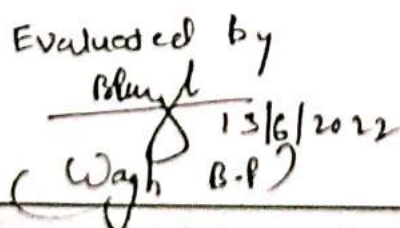 Evaluated by
13/6/2022
(Wagh B.P)